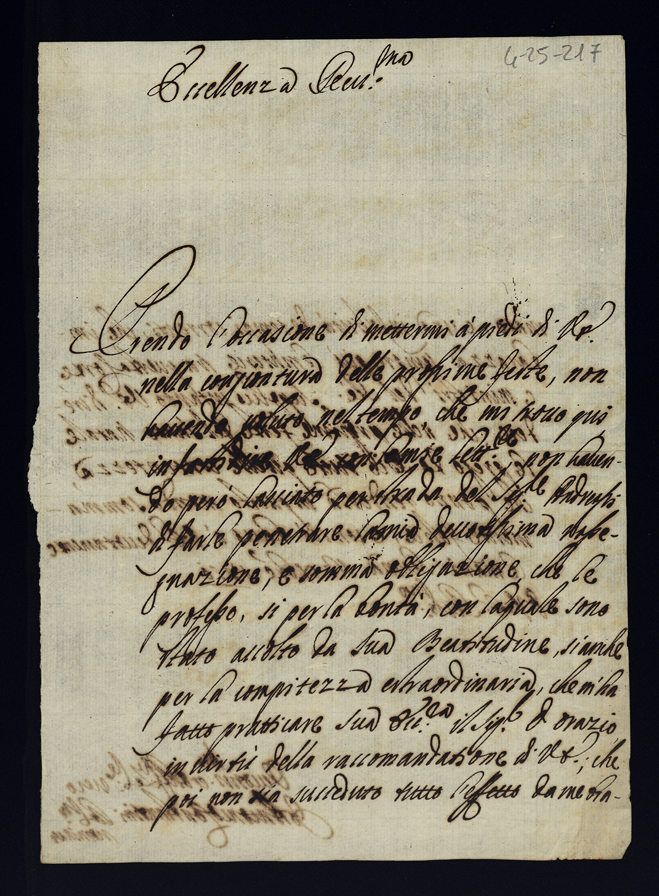 4-25-217
Eccellenza Rev.ma
Prendo l'occasione di mettermi à piedi di V.E.
nella congiontura delle prossime feste, non
havendo voluto nel tempo che mi trovo qui
in V.E. con lettere, non haven-
do però lasciato per strada del Sig.re
di farle penetrare la mia devotissima rasse-
gnazione, e somma obligazione, che le
professo, sì per la bontà, con la quale sono
stato accolto da Sua Beatitudine, si anche
per la compitezza estraordinaria, che mi ha
fatto pratticare Sua Ecc.za il Sig.r D. Orazio,
in virtù della raccomandatione di V.E.; che
poi non sia succeduto tutto l'effetto da me bra-